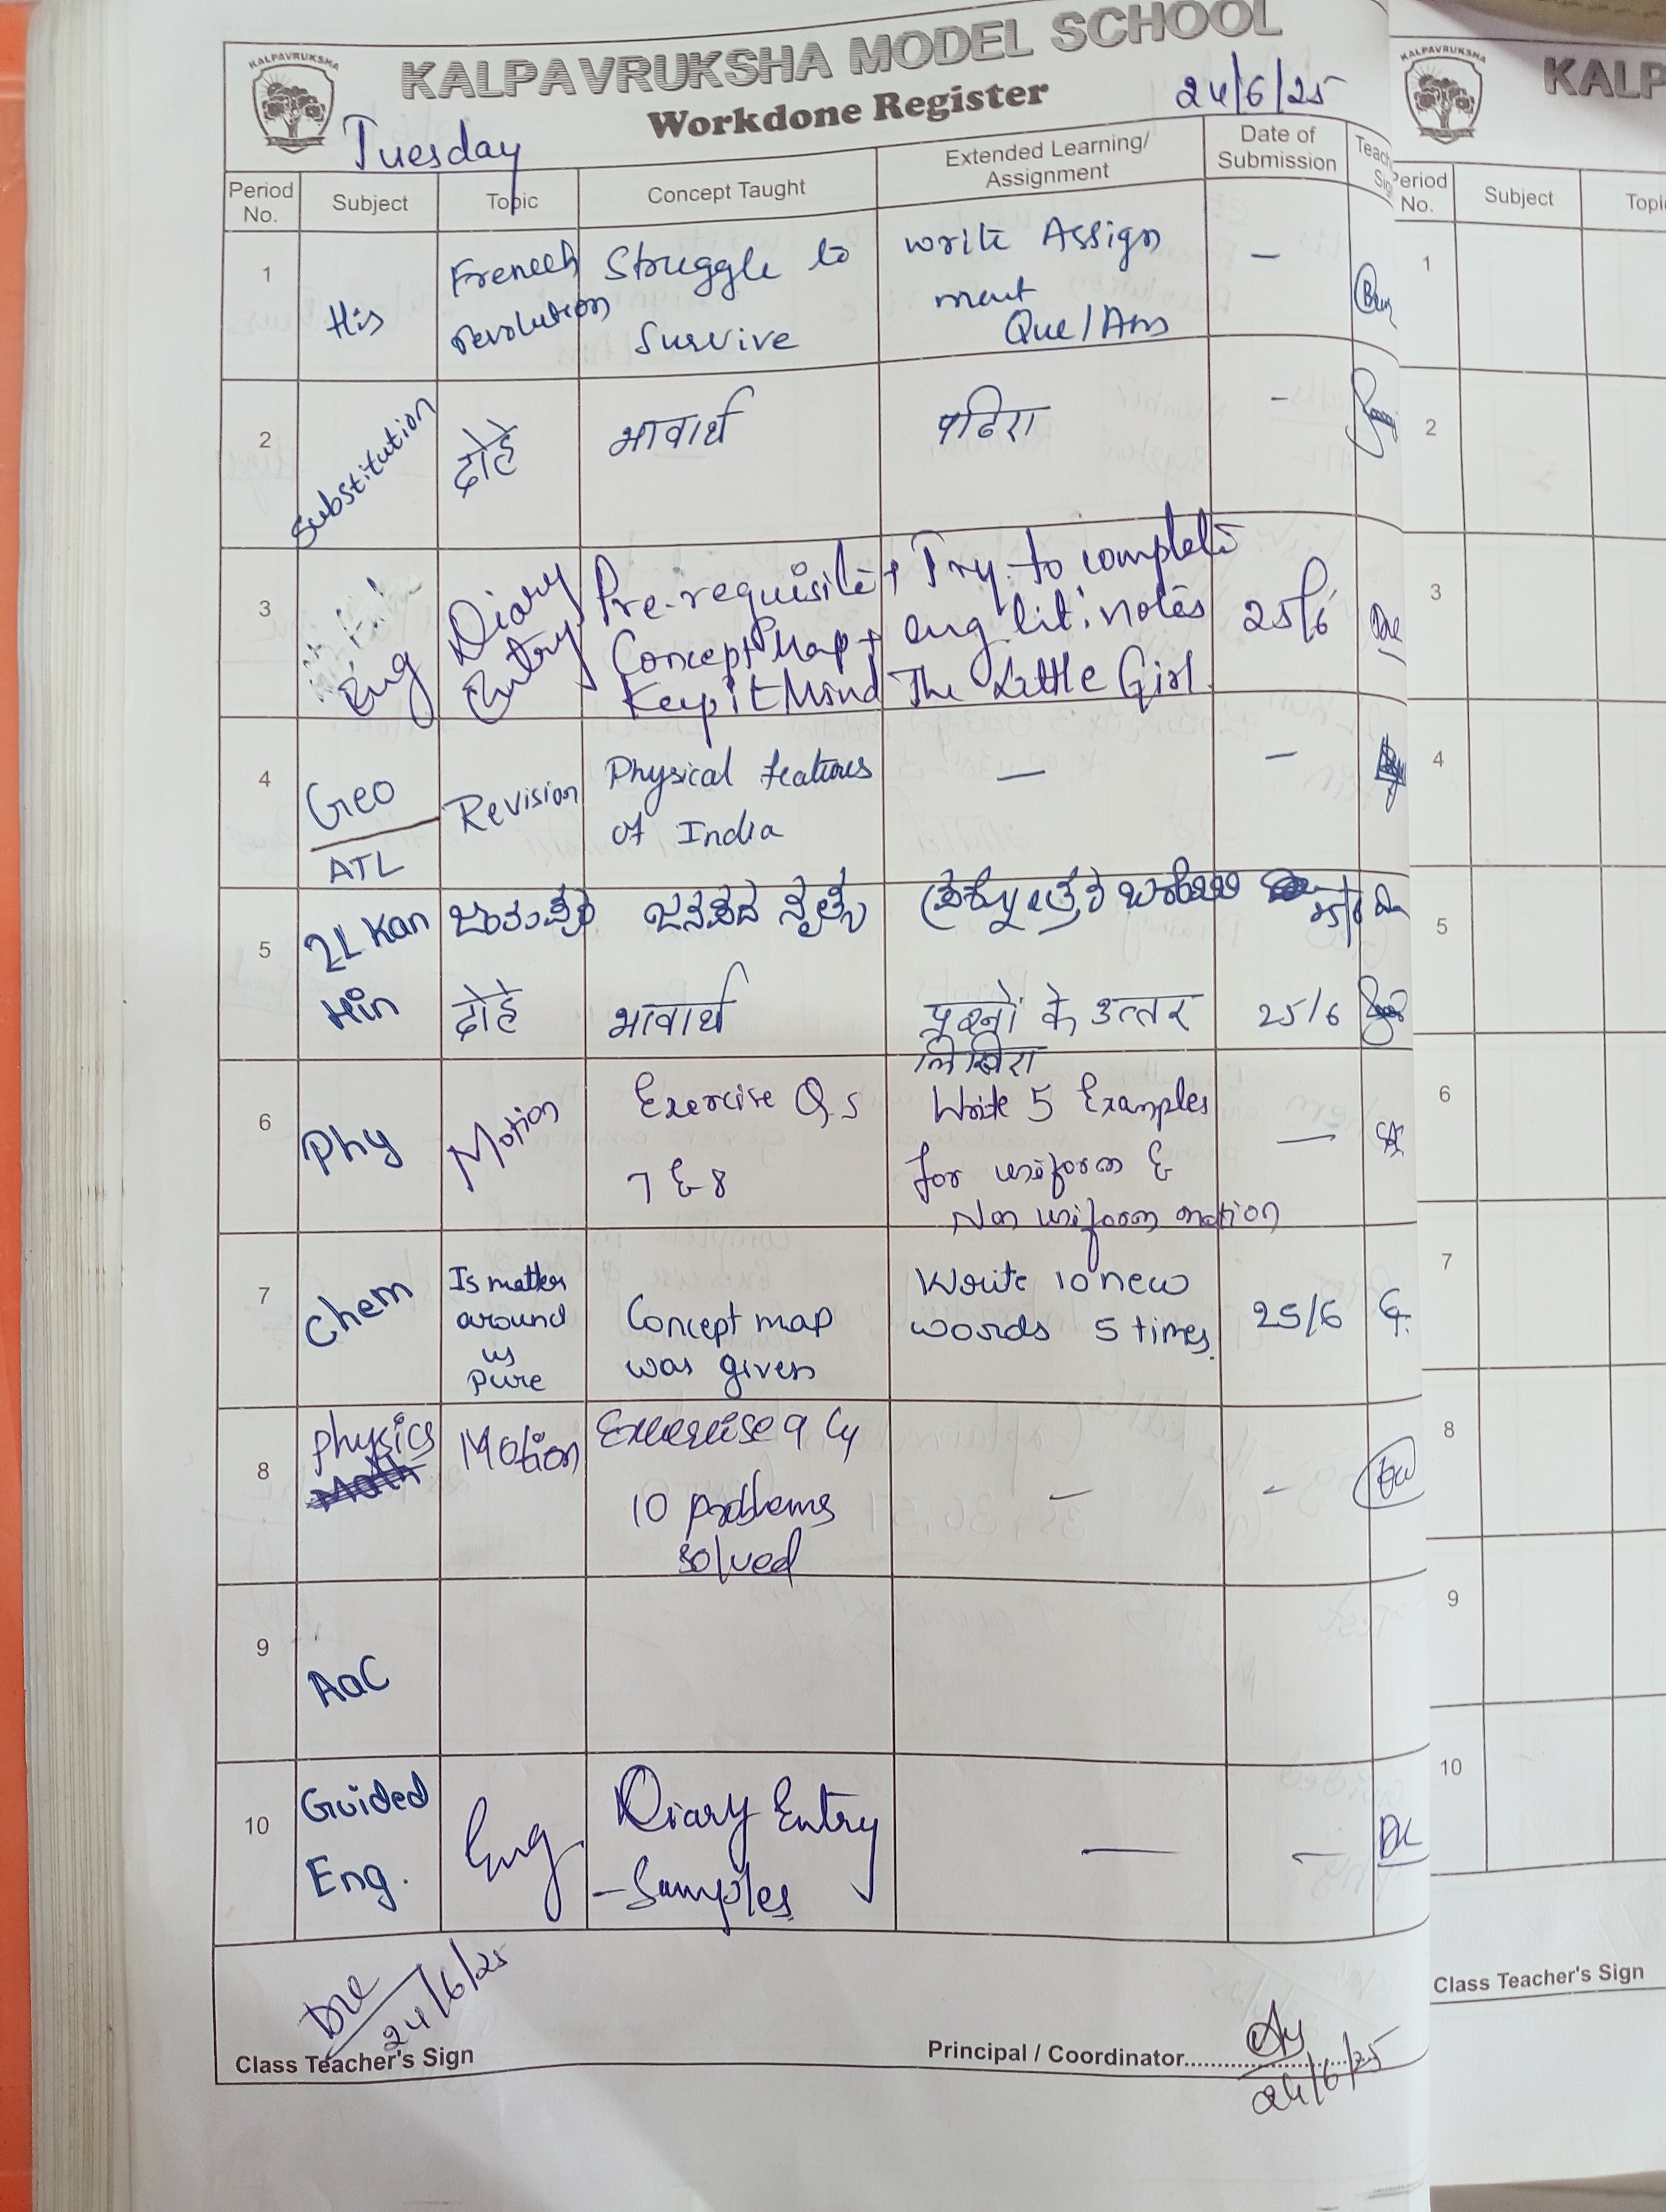 KALPAVRUKSHA
KALPAVRUKSHA MODEL SCHOOL
Workdone Register
24/6/25
Tuesday
Period No.
Subject
Topic
Concept Taught
Extended Learning/
Assignment
Date of
Submission
1
His
French
revolution
Struggle to
Survive
write Assign
ment
Que/Ans
-
2
Substitution
दोहे
भावार्थ
-
3
Eng
Diary
Entry
Pre-requisite +
Concept Map +
Keep it Mind
Try to complete
eng lit: notes
The Little Girl
25/6
4
Geo
ATL
Revision
Physical features
of India
-
-
5
2L Kan
ಜನಪದ
25/6
Hin
दोहे
भावार्थ
प्रश्नों के उत्तर
25/6
6
Phy
Motion
Exercise Q.s
7 & 8
Write 5 Examples
for uniform &
Non uniform motion
-
7
Chem
Is matter
around
us
Pure
Concept map
was given
Write 10 new
words 5 times.
25/6
8
Physics
Motion
Excercise 9 &
10 problems
solved
-
-
9
AaC
10
Guided
Eng.
Eng
Diary Entry
- Samples
-
-
24/6/25
Class Teacher's Sign
Principal / Coordinator
24/6/25
KALPAVRUKSHA
KALP
Period
No.
Subject
Topi
1
2
3
4
5
6
7
8
9
10
Class Teacher's Sign